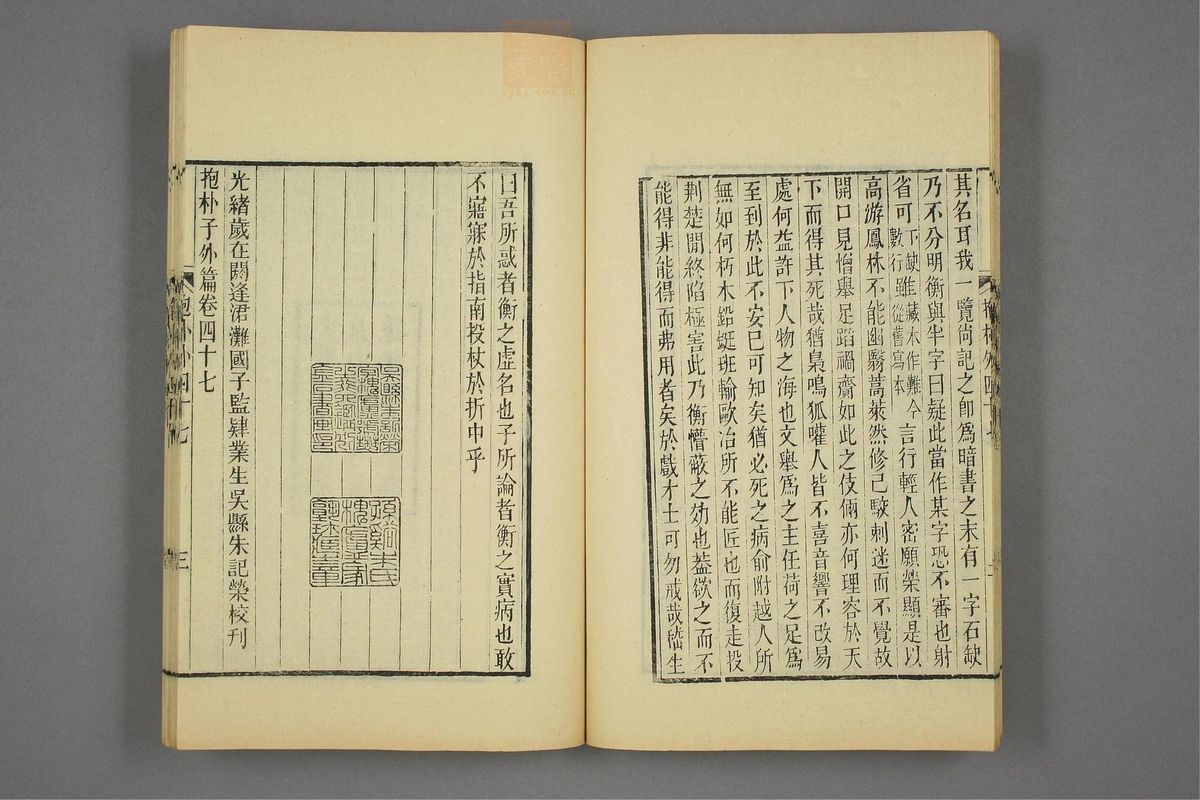 其名耳我一覽尙記之卽爲暗書之末有一字石缺
乃不分明衡與半字曰疑此當作某字恐不審也射
省可下缺數行雖藏本作難今從舊寫本言行輕人密願榮顯是以
高游鳳林不能幽翳蒿萊然修己駮刺迷而不覺故
開口見憎舉足蹈禍齎如此之伎倆亦何理容於天
下而得其死哉猶梟鳴狐嚾人皆不喜音響不改易
處何益許下人物之海也文舉爲之主任荷之足爲
至到於此不安已可知矣猶必死之病俞附越人所
無如何朽木鉛鋌班輸歐冶所不能匠也而復走投
荆楚閒終陷極害此乃衡懵蔽之効也葢欲之而不
能得非能得而弗用者矣於戲才士可勿戒哉嵇生
曰吾所惑者衡之虛名也子所論者衡之實病也敢
不寤寐於指南投杖於折中乎
吳縣朱記榮
孫谿朱氏
槐廬家
光緒歲在閼逢涒灘國子監肄業生吳縣朱記榮校刊
抱朴子外篇卷四十七
三